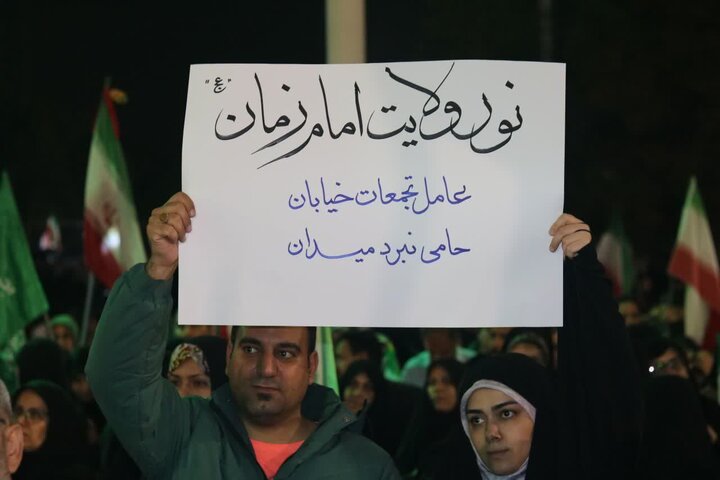 نور ولایت امام زمان "عج"
عامل تجمعات خیابان
حامی نبرد میدان